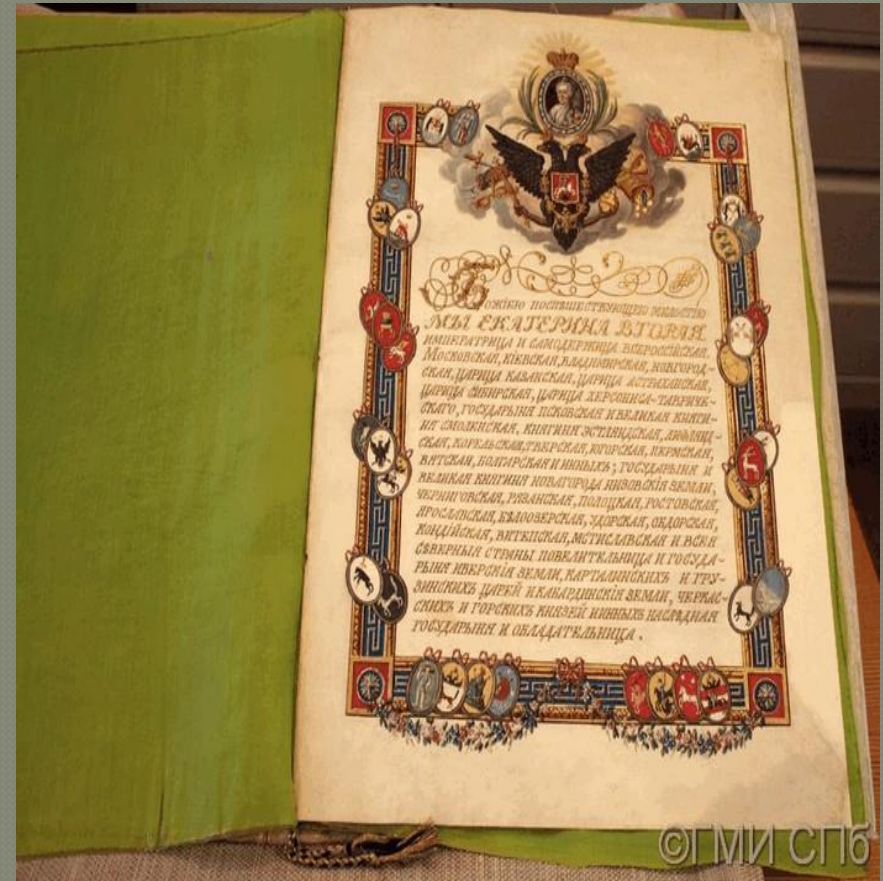 Божіею поспѣшествующею милостію
МЫ ЕКАТЕРИНА ВТОРАЯ
ИМПЕРАТРИЦА И САМОДЕРЖИЦА ВСЕРОССІЙСКАЯ,
МОСКОВСКАЯ, КІЕВСКАЯ, ВЛАДИМИРСКАЯ, НОВГОРОД-
СКАЯ, ЦАРИЦА КАЗАНСКАЯ, ЦАРИЦА АСТРАХАНСКАЯ,
ЦАРИЦА СИБИРСКАЯ, ЦАРИЦА ХЕРСОНИСА-ТАВРИЧЕ-
СКАГО, ГОСУДАРЫНЯ ПСКОВСКАЯ И ВЕЛИКАЯ КНЯГИ-
НЯ СМОЛЕНСКАЯ, КНЯГИНЯ ЭСТЛЯНДСКАЯ, ЛИФЛЯНД-
СКАЯ, КОРЕЛЬСКАЯ, ТВЕРСКАЯ, ЮГОРСКАЯ, ПЕРМСКАЯ,
ВЯТСКАЯ, БОЛГАРСКАЯ И ИННЫХЪ; ГОСУДАРЫНЯ И
ВЕЛИКАЯ КНЯГИНЯ НОВАГОРОДА НИЗОВСКІЯ ЗЕМЛИ,
ЧЕРНИГОВСКАЯ, РЯЗАНСКАЯ, ПОЛОЦКАЯ, РОСТОВСКАЯ,
ЯРОСЛАВСКАЯ, БѢЛООЗЕРСКАЯ, УДОРСКАЯ, ОБДОРСКАЯ,
КОНДІЙСКАЯ, ВИТЕПСКАЯ, МСТИСЛАВСКАЯ И ВСЕЯ
СѢВЕРНЫЯ СТРАНЫ ПОВЕЛИТЕЛЬНИЦА И ГОСУДА-
РЫНЯ ИВЕРСКІЯ ЗЕМЛИ, КАРТАЛИНСКИХЪ И ГРУ-
ЗИНСКИХЪ ЦАРЕЙ И КАБАРДИНСКІЯ ЗЕМЛИ, ЧЕРКАС-
СКИХЪ И ГОРСКИХЪ КНЯЗЕЙ И ИННЫХЪ НАСЛѢДНАЯ
ГОСУДАРЫНЯ И ОБЛАДАТЕЛЬНИЦА.
©ГМИ СПб